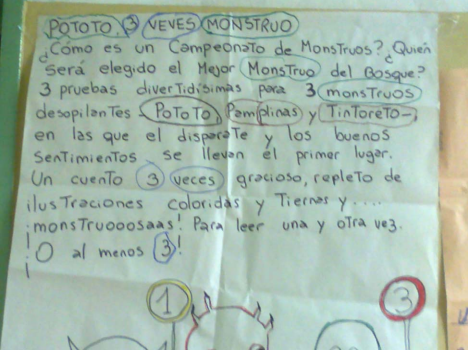 POTOTO. 3 VEVES MONSTRUO
¿Cómo es un Campeonato de Monstruos? ¿Quién
será elegido el Mejor Monstruo del Bosque?
3 pruebas divertidísimas para 3 monstruos
desopilantes. Pototo, Pamplinas y Tintoreto-,
en las que el disparate y los buenos
sentimientos se llevan el primer lugar.
Un cuento 3 veces gracioso, repleto de
ilustraciones coloridas y tiernas y....
¡monstruooosaas! Para leer una y otra vez.
¡O al menos 3!
1 3